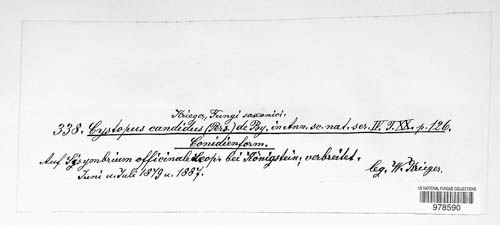 Krieger, Fungi saxonici.
338. Cystopus candidus (Pers.) de By. in Ann. sc. nat. ser. IV. T. XX. p. 126.
Conidienform.
Auf Sisymbrium officinale Scop. bei Königstein, verbreitet.
Juni u. Juli 1879 u. 1887.
leg. W. Krieger.
US NATIONAL FUNGUS COLLECTIONS
978590